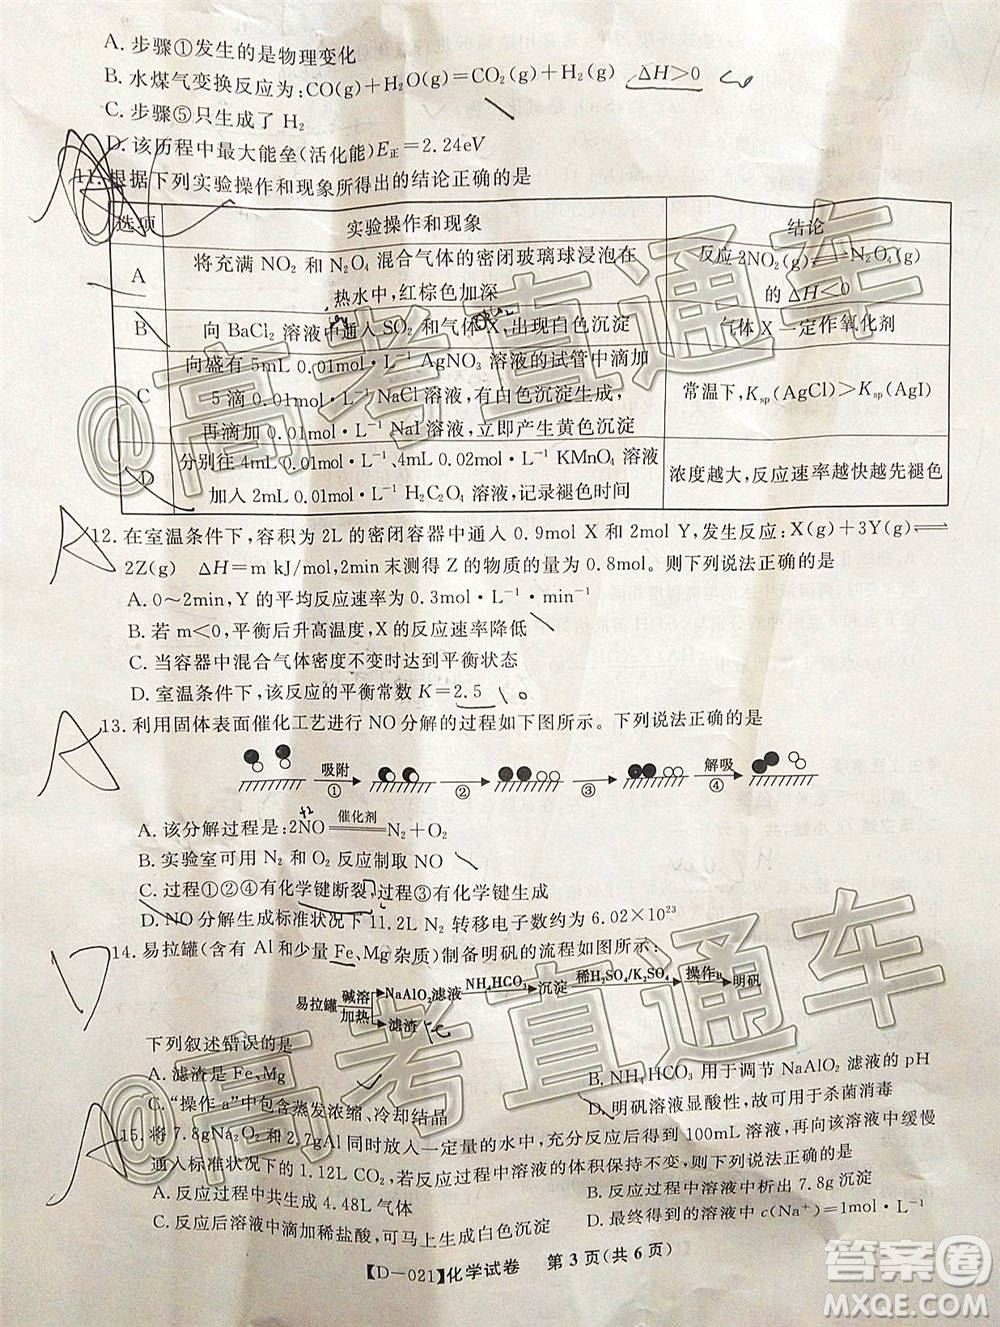 A. 步骤①发生的是物理变化
B. 水煤气变换反应为:CO(g)+H₂O(g)=CO₂(g)+H₂(g) ΔH>0
C. 步骤⑤只生成了 H₂
D. 该历程中最大能垒(活化能)E正=2.24eV
11. 根据下列实验操作和现象所得出的结论正确的是
选项 实验操作和现象 结论
A 将充满 NO₂ 和 N₂O₄ 混合气体的密闭玻璃球浸泡在热水中,红棕色加深 反应 2NO₂(g)⇌N₂O₄(g)的 ΔH<0
B 向 BaCl₂ 溶液中通入 SO₂ 和气体 X,出现白色沉淀 气体 X 一定作氧化剂
C 向盛有 5mL 0.01mol·L⁻¹ AgNO₃ 溶液的试管中滴加 5 滴 0.01mol·L⁻¹ NaCl 溶液,有白色沉淀生成,再滴加 0.01mol·L⁻¹ NaI 溶液,立即产生黄色沉淀 常温下,Ksp(AgCl)>Ksp(AgI)
D 分别往 4mL 0.01mol·L⁻¹、4mL 0.02mol·L⁻¹ KMnO₄ 溶液加入 2mL 0.01mol·L⁻¹ H₂C₂O₄ 溶液,记录褪色时间 浓度越大,反应速率越快越先褪色
12. 在室温条件下,容积为 2L 的密闭容器中通入 0.9mol X 和 2mol Y,发生反应:X(g)+3Y(g)⇌
2Z(g) ΔH=m kJ/mol,2min 末测得 Z 的物质的量为 0.8mol。则下列说法正确的是
A. 0～2min,Y 的平均反应速率为 0.3mol·L⁻¹·min⁻¹
B. 若 m<0,平衡后升高温度,X 的反应速率降低
C. 当容器中混合气体密度不变时达到平衡状态
D. 室温条件下,该反应的平衡常数 K=2.5
13. 利用固体表面催化工艺进行 NO 分解的过程如下图所示。下列说法正确的是
吸附 ① ② ③ 解吸 ④
A. 该分解过程是:2NO 催化剂 N₂+O₂
B. 实验室可用 N₂ 和 O₂ 反应制取 NO
C. 过程①②④有化学键断裂,过程③有化学键生成
D. NO 分解生成标准状况下 11.2L N₂ 转移电子数约为 6.02×10²³
14. 易拉罐(含有 Al 和少量 Fe、Mg 杂质)制备明矾的流程如图所示:
易拉罐 碱溶 加热 NaAlO₂滤液 NH₄HCO₃ 沉淀 稀H₂SO₄/K₂SO₄ 操作a 明矾
滤渣
下列叙述错误的是
A. 滤渣是 Fe、Mg B. NH₄HCO₃ 用于调节 NaAlO₂ 滤液的 pH
C.“操作 a”中包含蒸发浓缩、冷却结晶 D. 明矾溶液显酸性,故可用于杀菌消毒
15. 将 7.8gNa₂O₂ 和 2.7gAl 同时放入一定量的水中,充分反应后得到 100mL 溶液,再向该溶液中缓慢
通入标准状况下的 1.12L CO₂,若反应过程中溶液的体积保持不变,则下列说法正确的是
A. 反应过程中共生成 4.48L 气体 B. 反应过程中溶液中析出 7.8g 沉淀
C. 反应后溶液中滴加稀盐酸,可马上生成白色沉淀 D. 最终得到的溶液中 c(Na⁺)=1mol·L⁻¹
【D－021】化学试卷 第 3 页(共 6 页)
@高考直通车
@高考直通车
答案圈
MXQE.COM